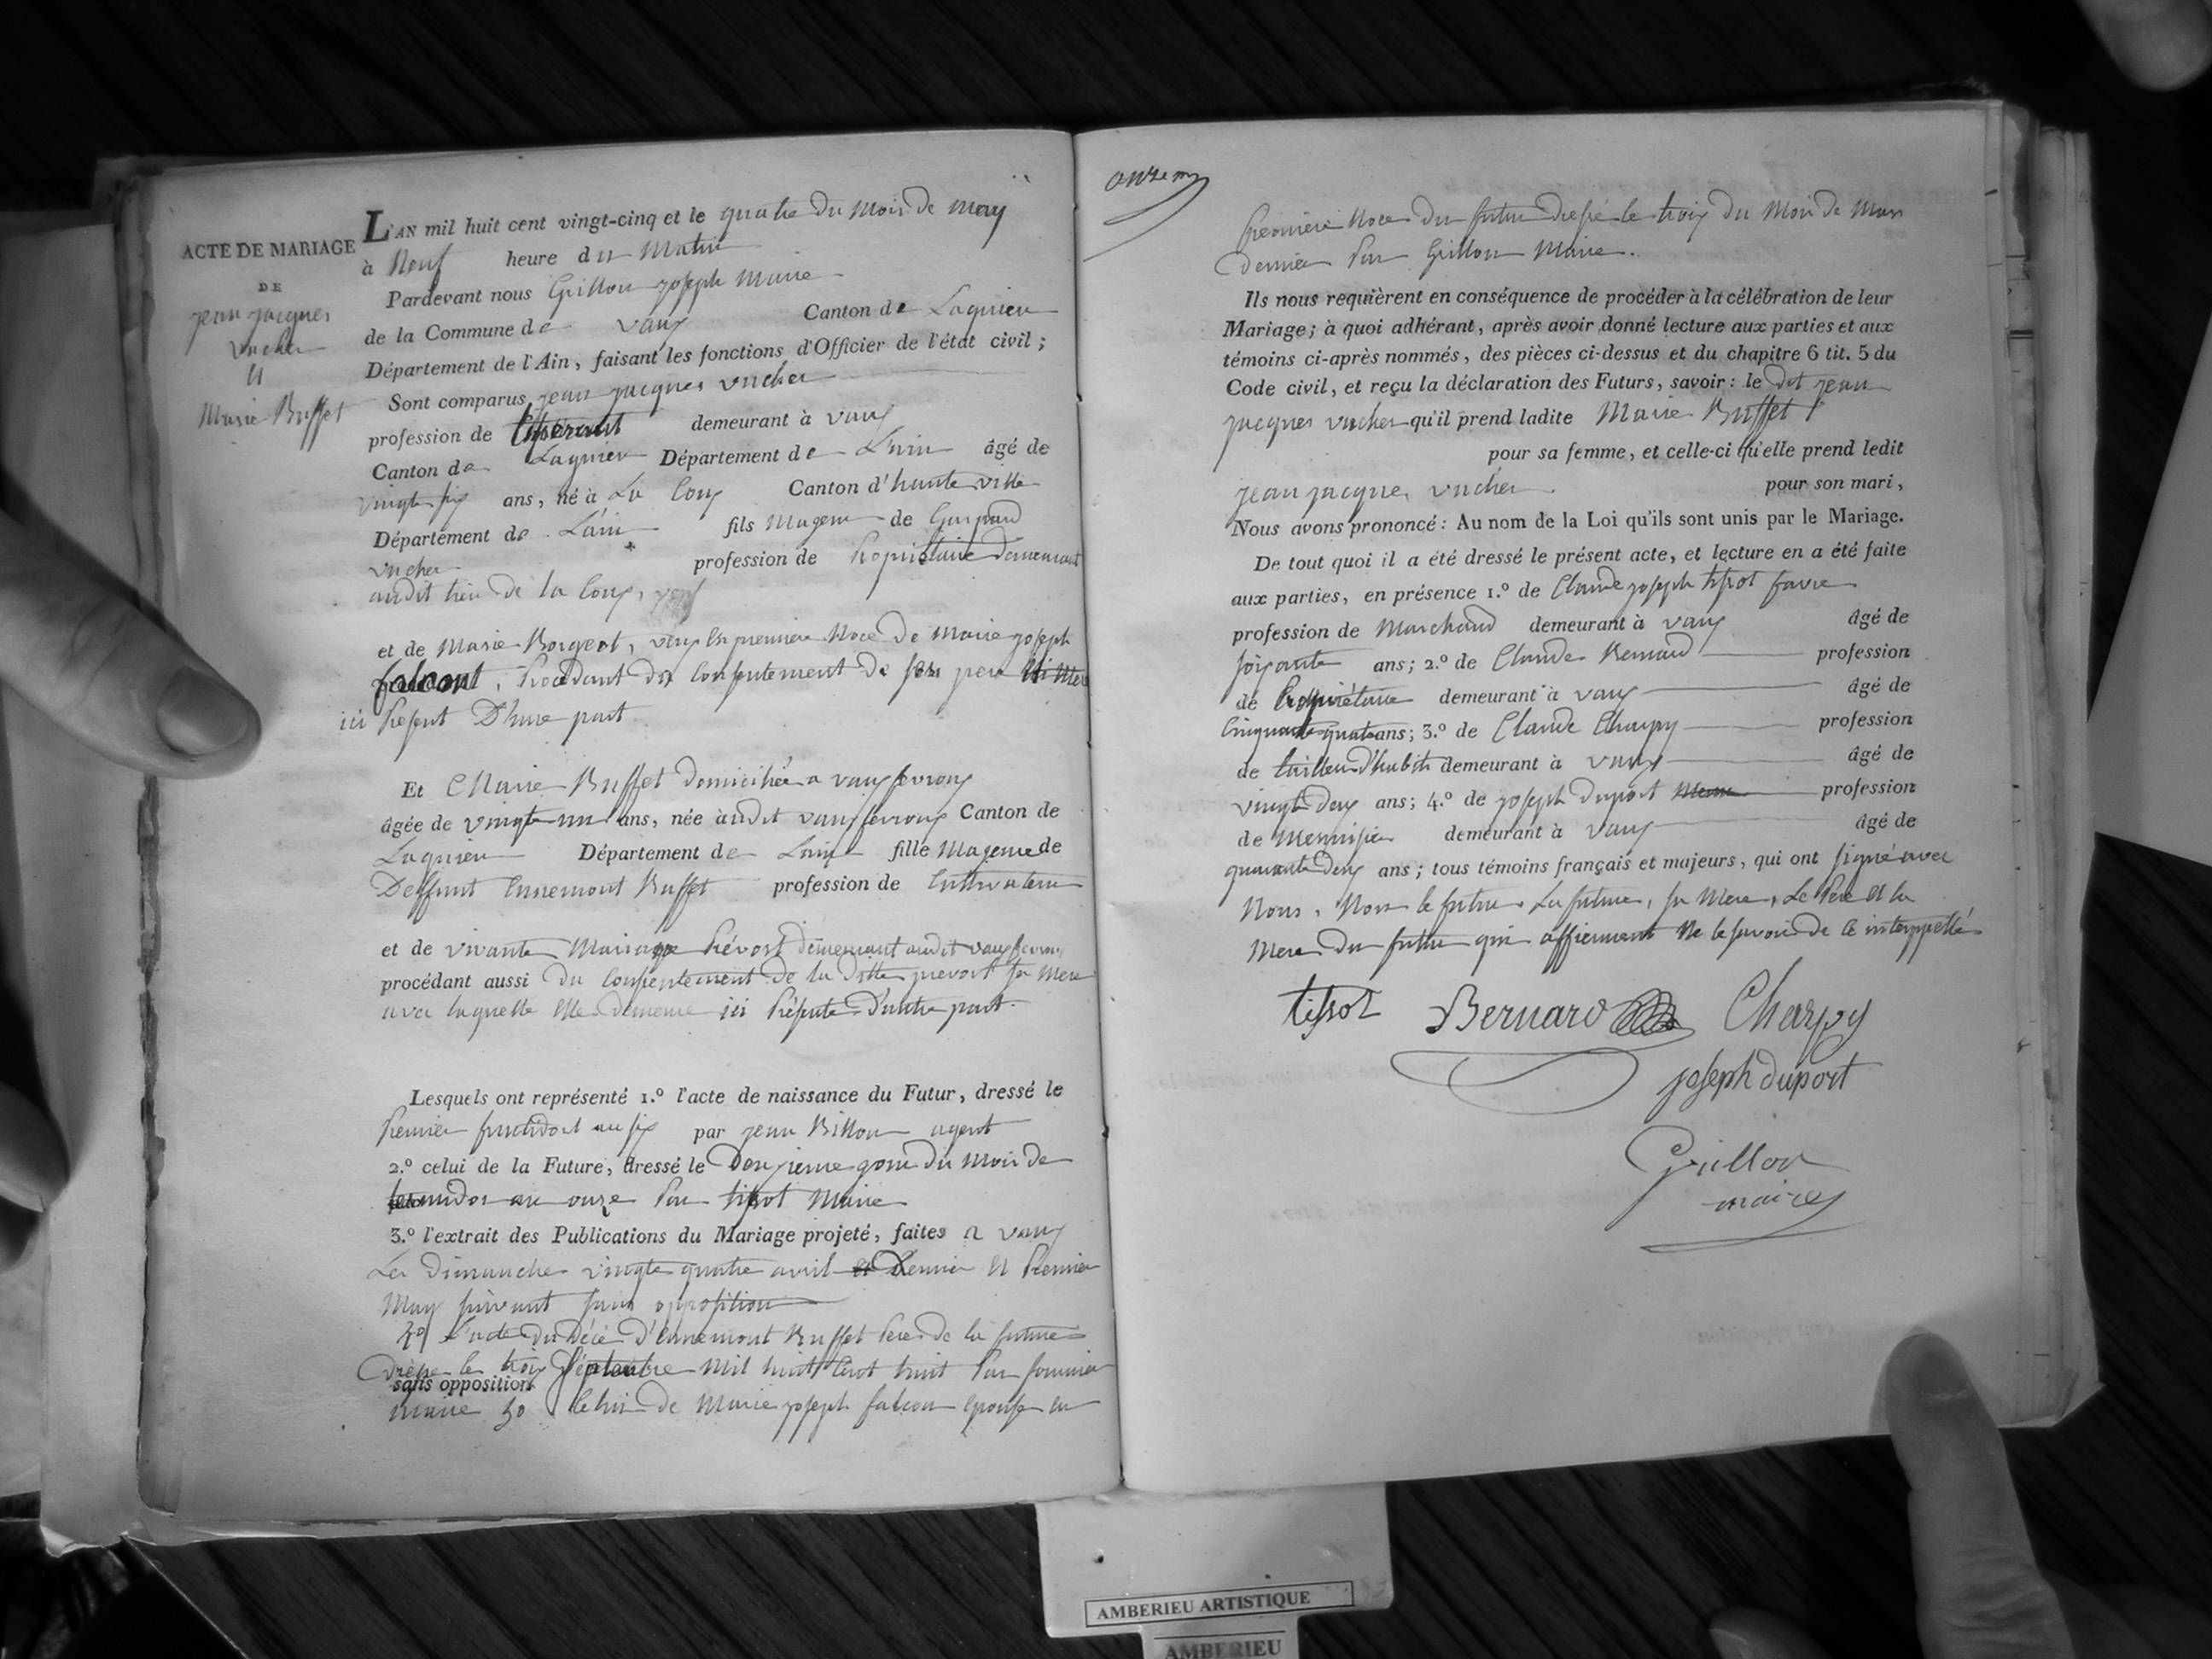 ACTE DE MARIAGE
DE
jean jacques
vucher
et
Marie Buffet
L'AN mil huit cent vingt-cinq et le quatre du mois de may
à Neuf heure du Matin
Pardevant nous Grillon joseph Maire
de la Commune de vaux Canton de Lagnieu
Département de l'Ain, faisant les fonctions d'Officier de l'état civil;
Sont comparus jean jacques vucher
profession de tisserant demeurant à vaux
Canton de Lagnieu Département de L'ain âgé de
vingt six ans, né à La Coux Canton d'hauteville
Département de L'ain fils Mageur de Gaspard
vucher profession de Propriétaire demeurant
audit lieu de la Coux, veuf
et de Marie Borgeot, veuf en premiere Noce de Marie joseph
falcont, Procédant du Consentement de son pere et Mere
ici Présent D'une part
Et Marie Buffet domiciliée a vaux fevroux
âgée de vingt un ans, née àudit vaux fevroux Canton de
Lagnieu Département de Lain fille Mageure de
Deffunt Ennemont Buffet profession de Cultivateur
et de vivante Mariane Prévost demeurant audit vaux fevroux
procédant aussi du Consentement de la ditte prevost sa Mere
avec laquelle elle demeure ici Présente D'autre part.
Lesquels ont représenté 1.º l'acte de naissance du Futur, dressé le
Premier fructidort an six par jean Billon agent
2.º celui de la Future, dressé le Deuxieme jour du Mois de
an onze Par tissot Maire
3.º l'extrait des Publications du Mariage projeté, faites a vaux
Les Dimanches vingt quatre avril et Dernier et Premier
May suivant sans opposition
4º L'acte du Décé D'Ennemont Buffet Pere de la future
Dréssé le trois Séptembre Mil huit Cent huit Par fournier
sans opposition
Maire 5º celui de Marie joseph falcon Epouse en
onze m
Premiere Noce du futur Dressé le troix du Mois de Mars
dernier Par Grillon Maire.
Ils nous requièrent en conséquence de procéder à la célébration de leur
Mariage; à quoi adhérant, après avoir donné lecture aux parties et aux
témoins ci-après nommés, des pièces ci-dessus et du chapitre 6 tit. 5 du
Code civil, et reçu la déclaration des Futurs, savoir: le dit jean
jacques vucher qu'il prend ladite Marie Buffet
pour sa femme, et celle-ci qu'elle prend ledit
jean jacques vucher pour son mari,
Nous avons prononcé: Au nom de la Loi qu'ils sont unis par le Mariage.
De tout quoi il a été dressé le présent acte, et lecture en a été faite
aux parties, en présence 1.º de Claude joseph tissot favre
profession de Marchand demeurant à vaux âgé de
soixante ans; 2.º de Claude Bernard profession
de Propriétaire demeurant à vaux âgé de
Cinquante quatre ans; 3.º de Claude Charpy profession
de tailleur D'habits demeurant à vaux âgé de
vingt deux ans; 4.º de joseph duport profession
de Mennisier demeurant à vaux âgé de
quarante deux ans; tous témoins français et majeurs, qui ont signé avec
Nous, Non le futur, La future, sa Mere, Le Père et la
Mere du futur qui affierment Ne le savoir de ce interppellés
tissot Bernard Charpy
joseph duport
Grillon
maire
AMBERIEU ARTISTIQUE
AMBERIEU